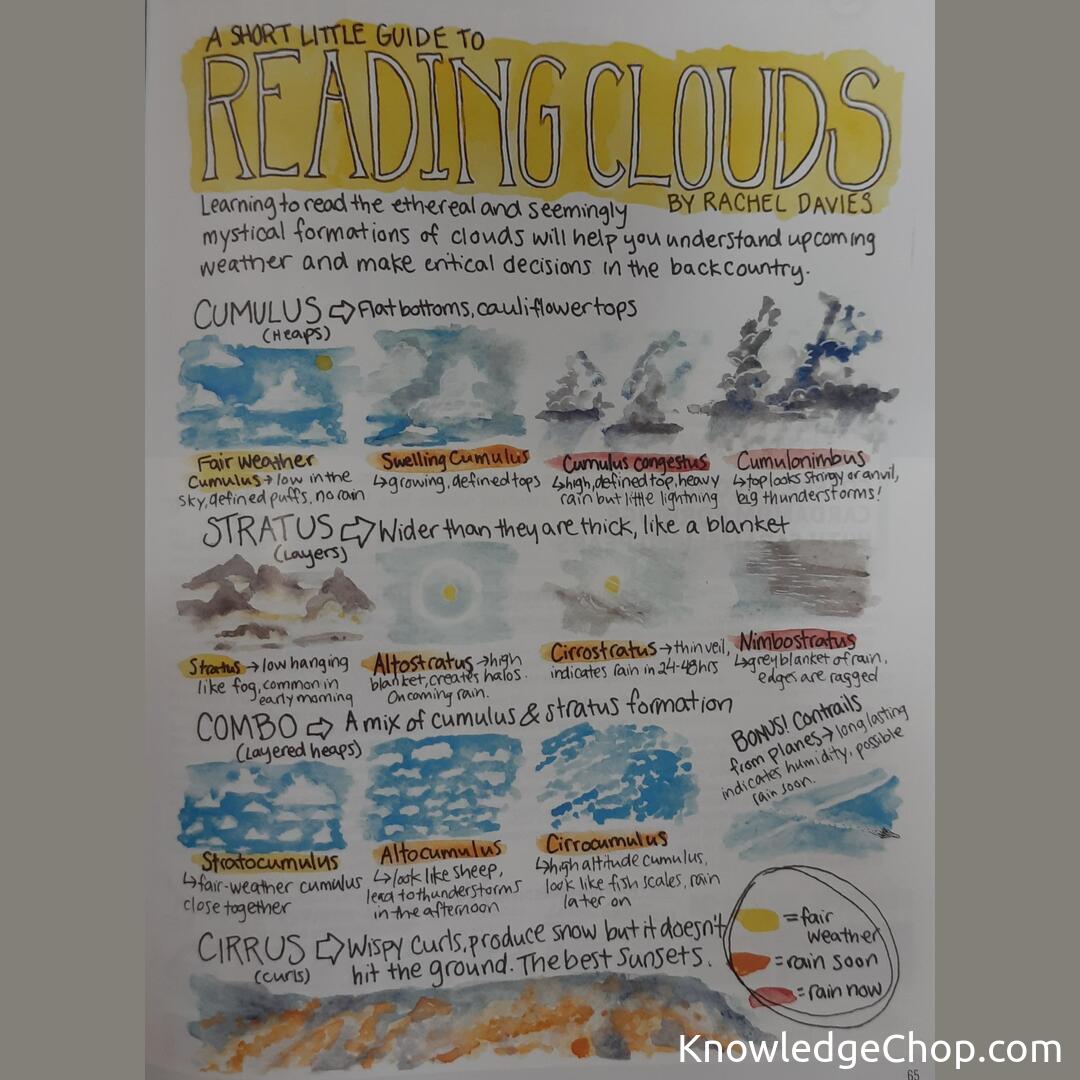 A SHORT LITTLE GUIDE TO
READING CLOUDS
BY RACHEL DAVIES
Learning to read the ethereal and seemingly
mystical formations of clouds will help you understand upcoming
weather and make critical decisions in the backcountry.
CUMULUS ⇨ Flat bottoms, cauliflower tops
(Heaps)
Fair Weather
Cumulus → low in the
sky, defined puffs, no rain
Swelling Cumulus
↳ growing, defined tops
Cumulus congestus
↳ high, defined top, heavy
rain but little lightning
Cumulonimbus
↳ top looks stringy or anvil,
big thunderstorms!
STRATUS ⇨ Wider than they are thick, like a blanket
(Layers)
Stratus → low hanging
like fog, common in
early morning
Altostratus → high
blanket, creates halos.
Oncoming rain.
Cirrostratus → thin veil,
indicates rain in 24-48hrs
Nimbostratus
↳ grey blanket of rain,
edges are ragged
COMBO ⇨ A mix of cumulus & stratus formation
(Layered heaps)
BONUS! Contrails
from planes → long lasting
indicates humidity, possible
rain soon.
Stratocumulus
↳ fair-weather cumulus
close together
Altocumulus
↳ look like sheep,
lead to thunderstorms
in the afternoon
Cirrocumulus
↳ high altitude cumulus,
look like fish scales, rain
later on
CIRRUS ⇨ Wispy curls, produce snow but it doesn't
(curls)
hit the ground. The best sunsets.
= fair
weather
= rain soon
= rain now
KnowledgeChop.com
65